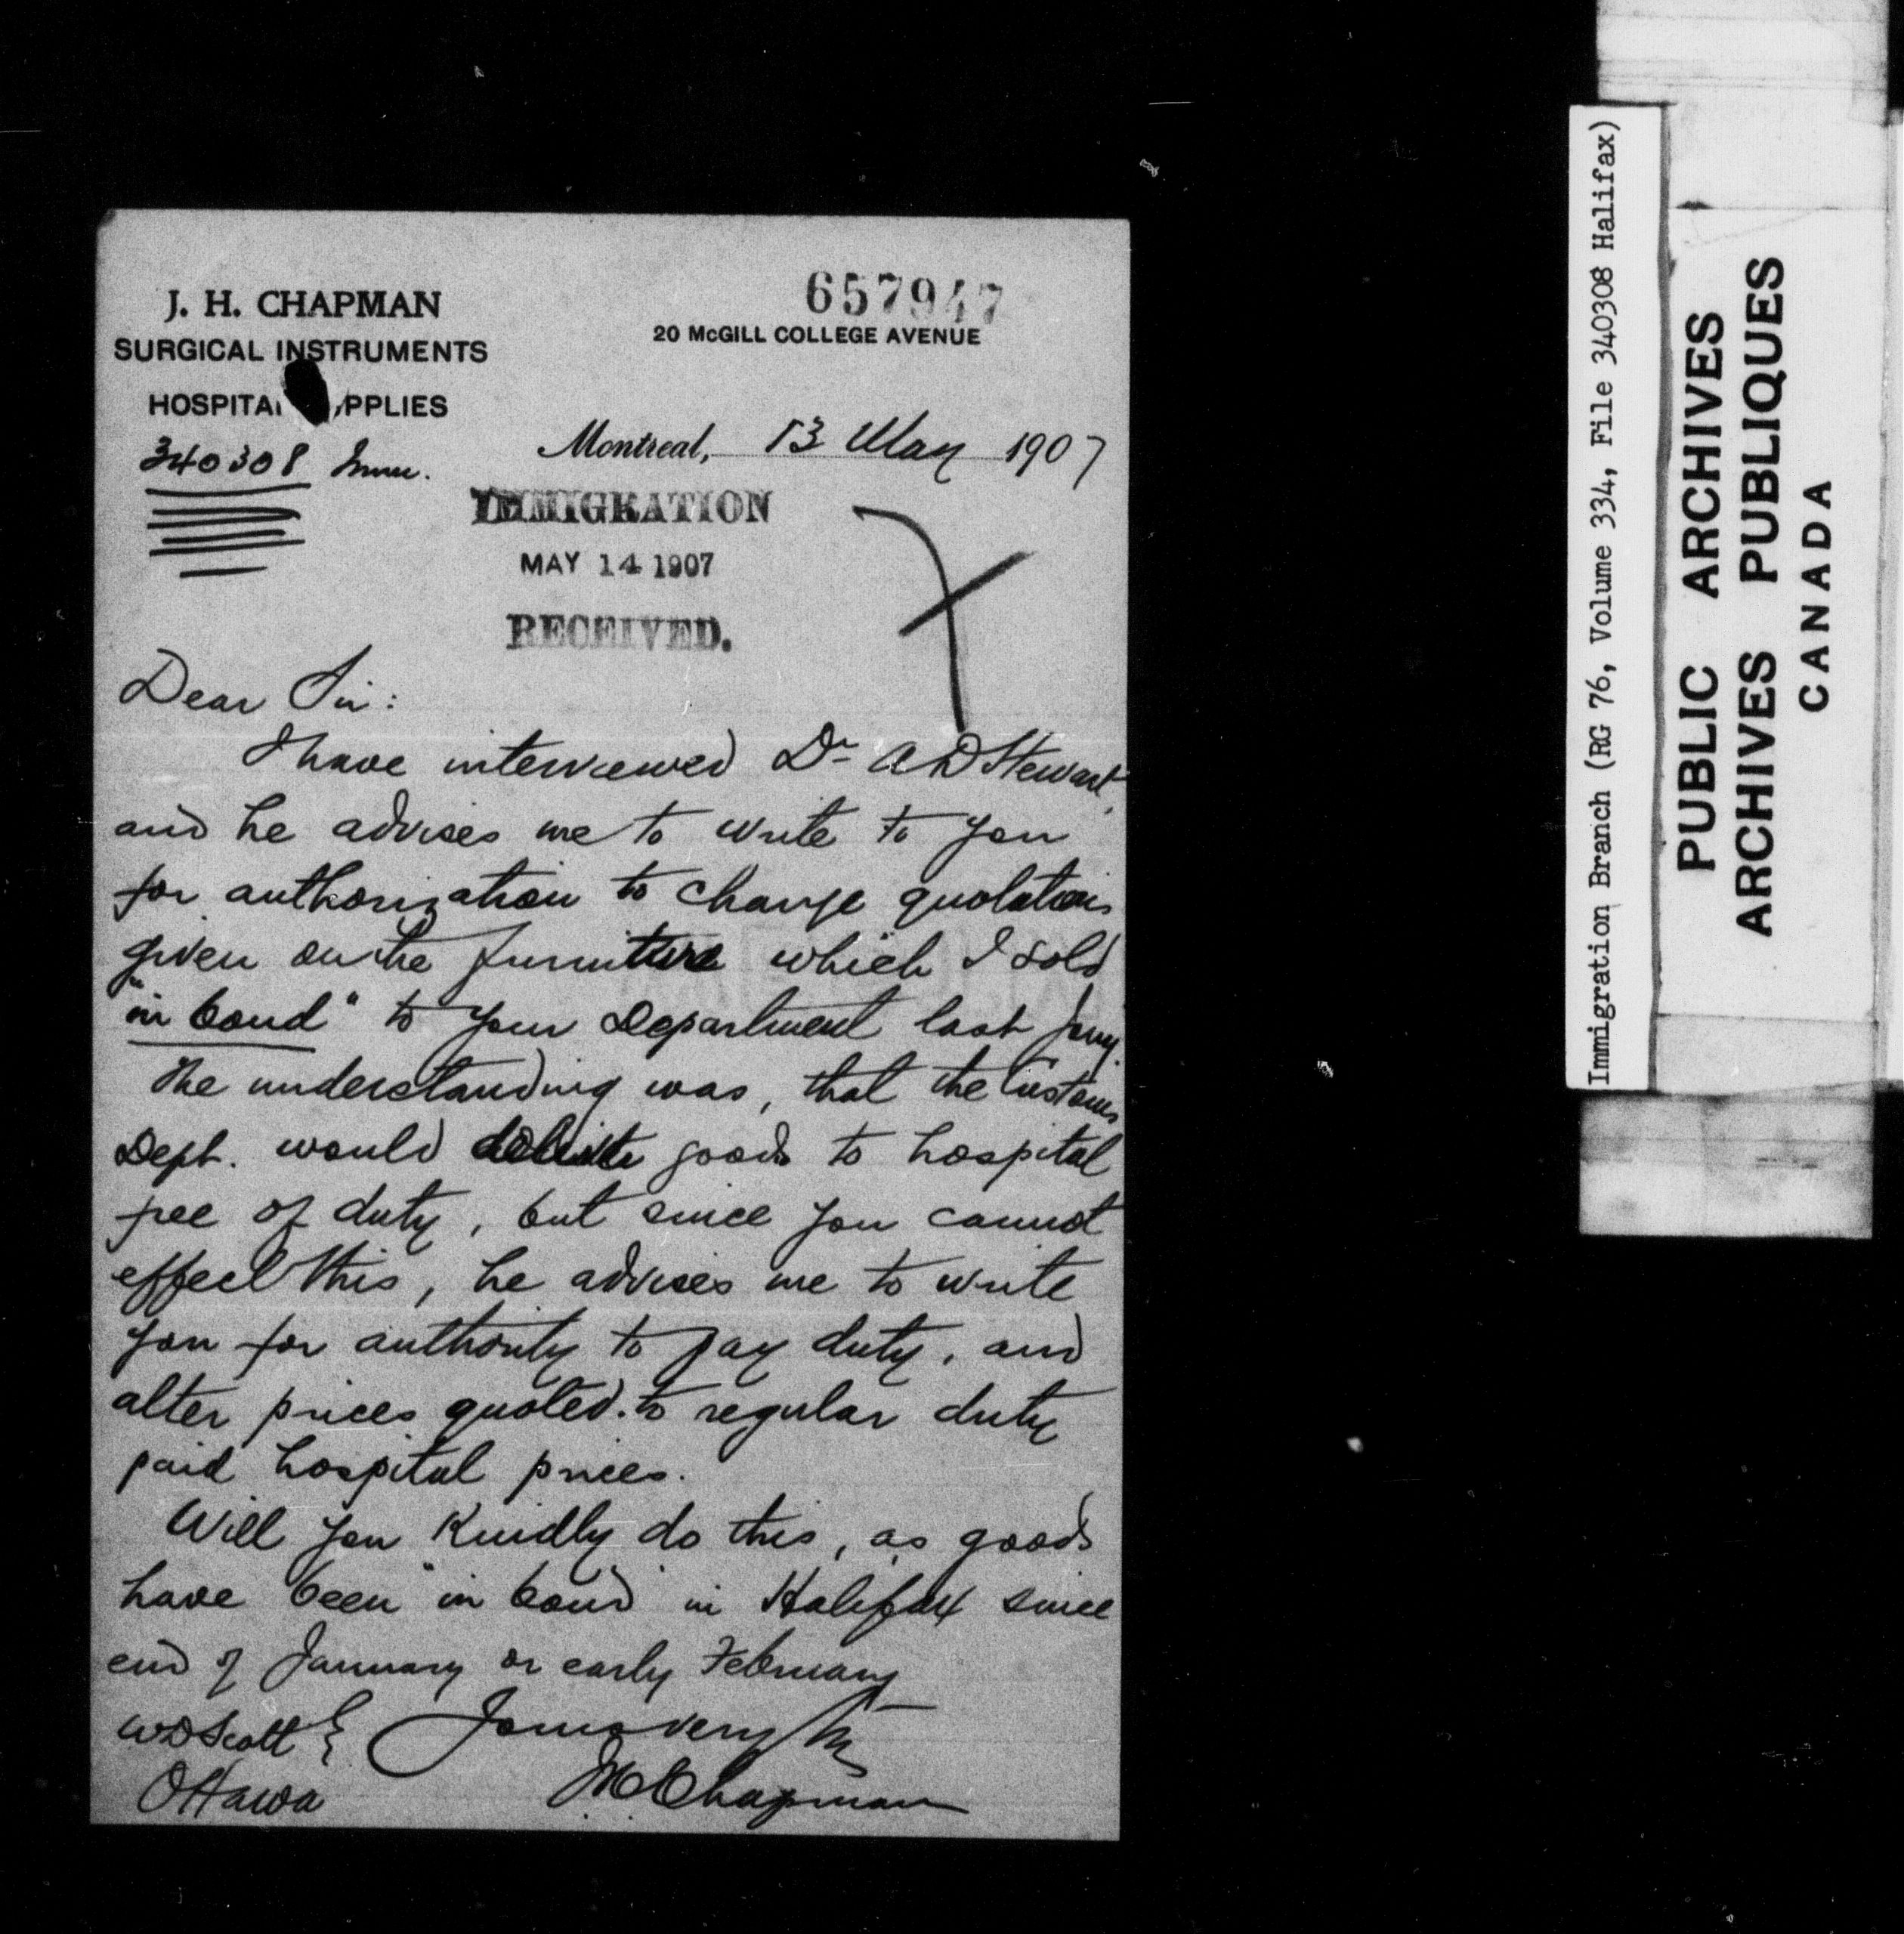 J. H. CHAPMAN
SURGICAL INSTRUMENTS
HOSPITAL SUPPLIES
657947
20 McGILL COLLEGE AVENUE
340308 Imm.
Montreal, 13 May 1907
IMMIGRATION
MAY 14 1907
RECEIVED.
Dear Sir:
I have interviewed Dr A D Stewart,
and he advises me to write to you
for authorization to change quotations
given on the furniture which I sold
"in bond" to your Department last Jany.
The understanding was, that the Customs
Dept. would goods to hospital
free of duty, but since you cannot
effect this, he advises me to write
you for authority to pay duty, and
alter prices quoted to regular duty
paid hospital prices.
Will you Kindly do this, as goods
have been "in bond" in Halifax since
end of January or early February
Yours very
W D Scott
Ottawa
J H Chapman
Immigration Branch (RG 76, Volume 334, File 340308 Halifax)
PUBLIC ARCHIVES
ARCHIVES PUBLIQUES
CANADA